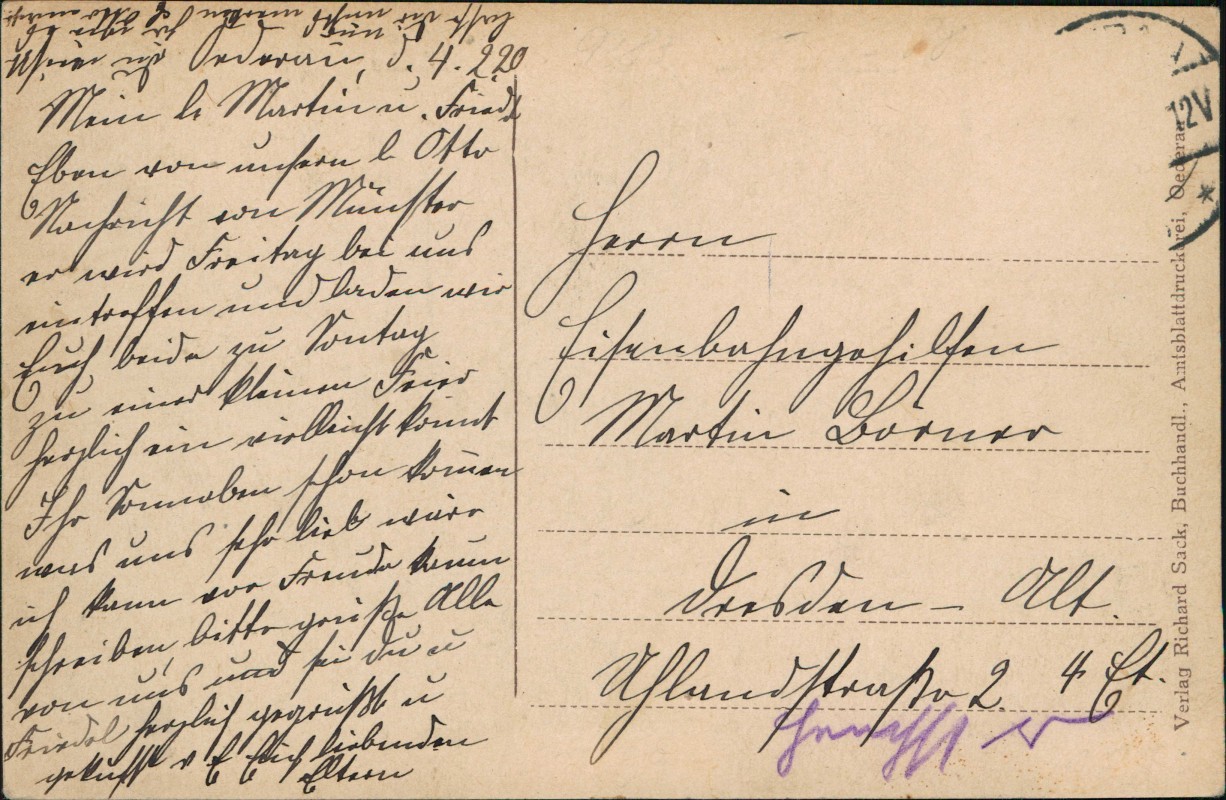 Oederau, d. 4. 2. 20
Mein l. Martin u. Friedl
Eben von unsern l. Otto
Nachricht von Münster
er wird Freitag bei uns
eintreffen und laden wir
Euch beide zu Sontag
zu einer kleinen Feier
herzlich ein vielleicht könnt
Ihr Sonnaben schon kommen
was uns sehr lieb wäre
ich kann vor Freude kaum
schreiben, bitte grüße Alle
von uns und sei du u
Friedel herzlich gegrüßt u
geküßt v E Euch liebenden
Eltern
Herrn
Eisenbahngehilfen
Martin Börner
in
Dresden - Alt.
Uhlandstraße 2. 4 Et.
12V
*
Verlag Richard Sack, Buchhandl., Amtsblattdruckerei, Oederan